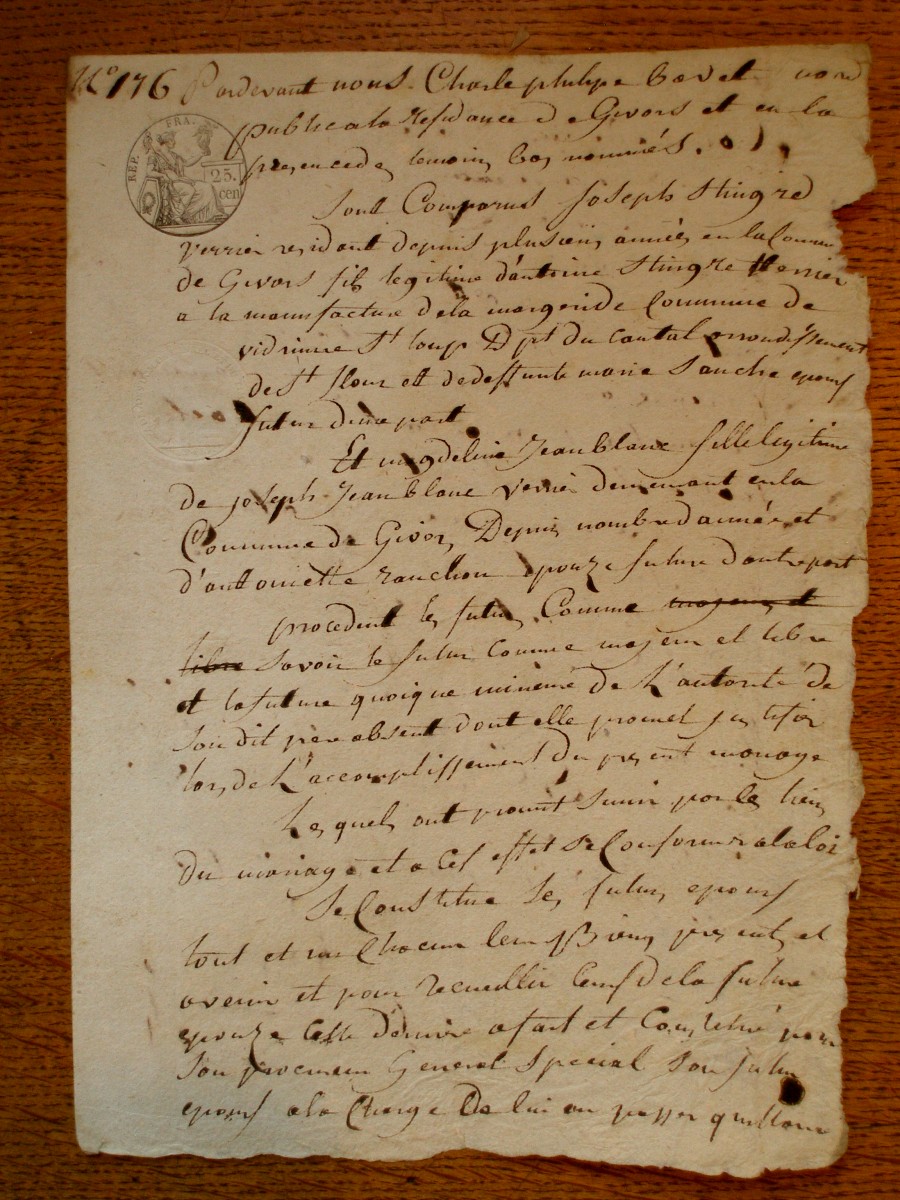 N.º 176 Pardevant nous Charle philipe bovet nore
REP. FRA.
25. cen
publicala Residance de Givors et en la
presencedes temoins bas nommés.
Sont Comparus Joseph Stingre
verrier residant depuis plusieurs années en la Commune
de Givors fils legitime d'antoine Stingre verrier
a la manufacture dela margeride Commune de
vidrinne St loup Dpt du cantal arrondissement
de St flour et dedeffunte marie Sauche epoux
futur dune part
Et magdeline Jeanblanc fille legitime
de joseph Jeanblanc verrier demeurant en la
Commune de Givors, Depuis nombre dannée et
d'antoinette ranchon epouze future dautrepart
procedent les futurs Comme majeurs et
libre savoir le futur comme majeur et libre
et lafuture quoique mineure de L'autorité de
son dit pere absent dont elle promet justifier
lors de L'accomplissement du present mariage
Lesquels ont promit sunir par les liens
du mariage et a cet effet se Conformer alaloi
Se Constitue les futurs epoux
tout et un Chacun leurs Biens presents et
avenir et pour recueillir Ceux dela future
epouze Cette derniere a fait et Constitué pour
son procureur General Special son futur
epoux ala Charge De lui en passer quittance